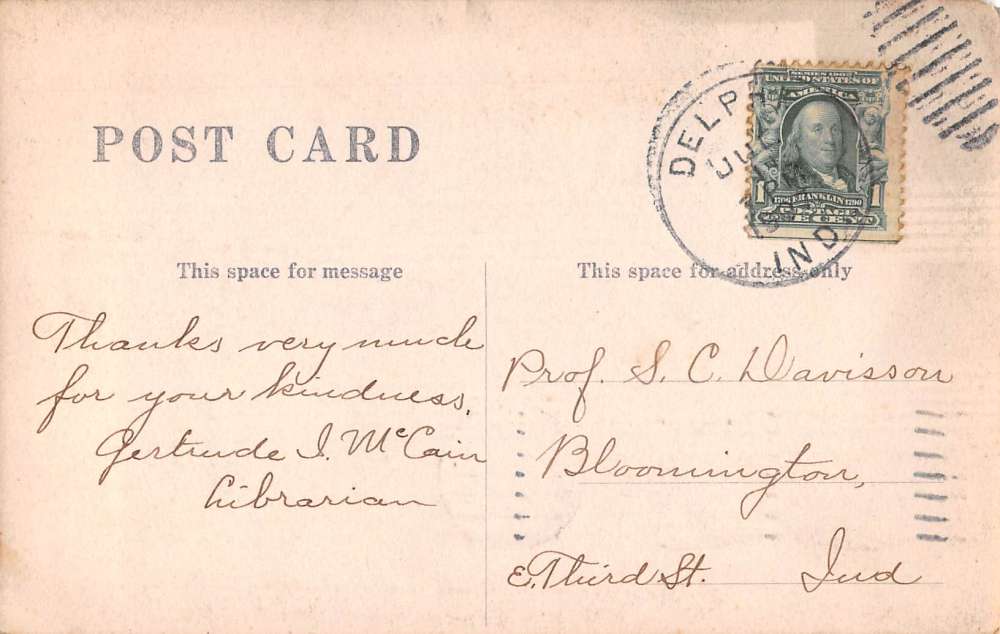 POST CARD
DELPHI
JUL
IND
SERIES 1902
UNITED STATES OF
AMERICA
1 1
1706 FRANKLIN 1790
POSTAGE
ONE CENT
This space for message
This space for address only
Thanks very much
for your kindness.
Gertrude I. McCain
Librarian
Prof. S. C. Davisson
Bloomington,
E. Third St. Ind